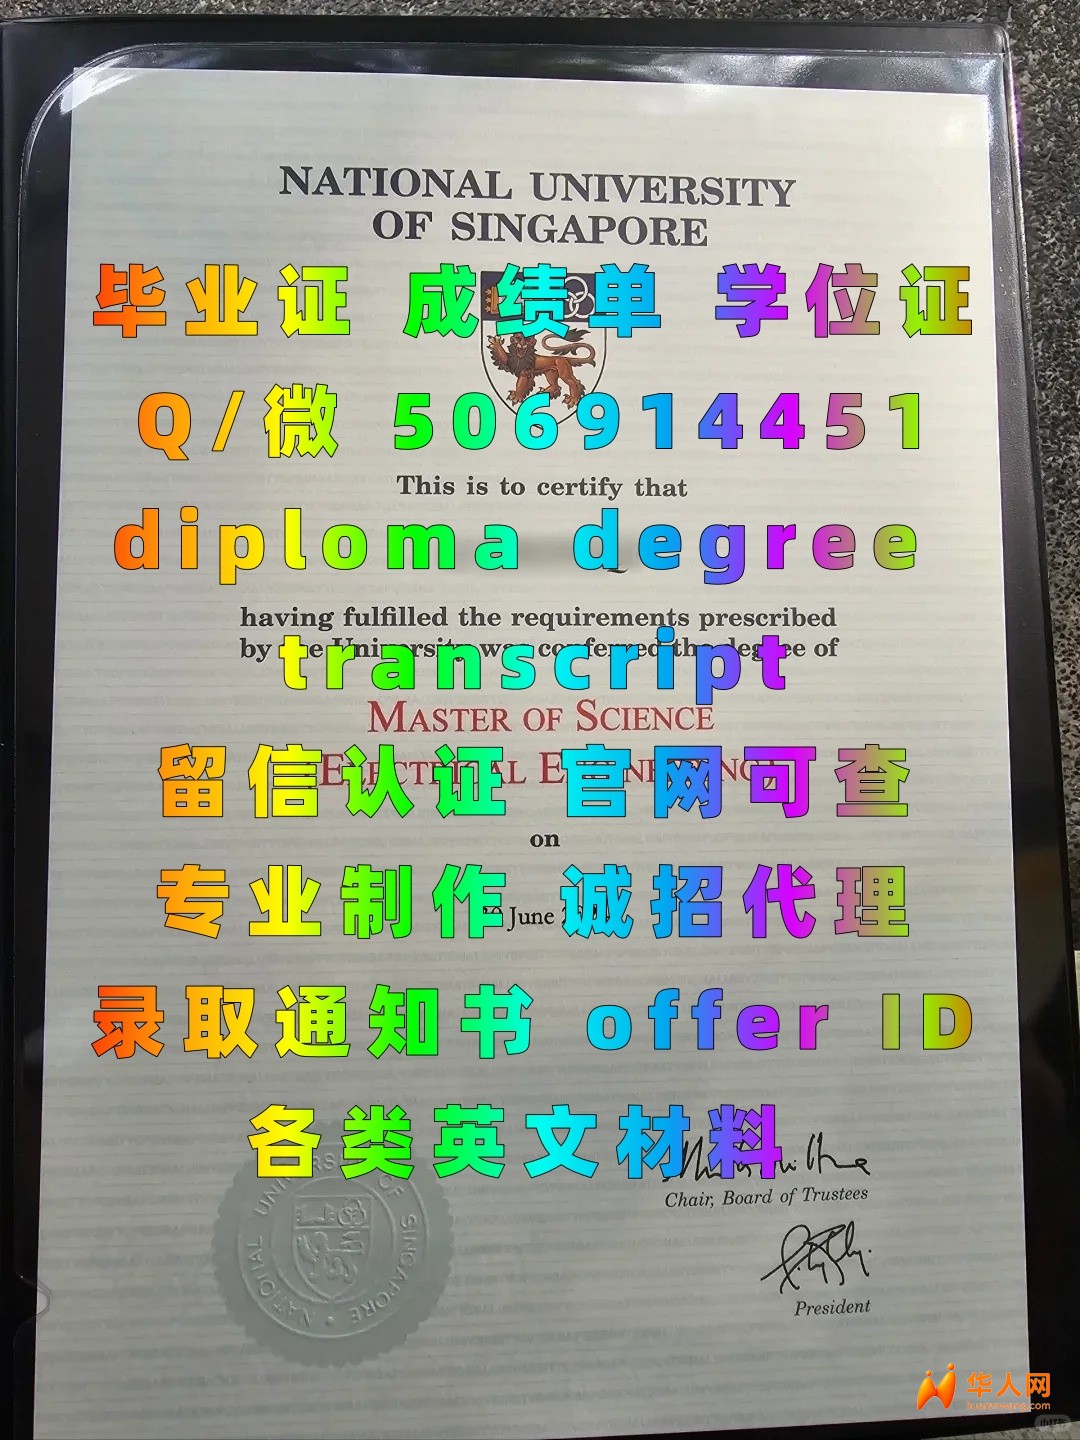 NATIONAL UNIVERSITY
OF SINGAPORE
毕业证 成绩单 学位证
Q/微 506914451
This is to certify that
diploma degree
having fulfilled the requirements prescribed
by the University was conferred the degree of
transcript
MASTER OF SCIENCE
(ELECTRICAL ENGINEERING)
留信认证 官网可查
on
专业制作 诚招代理
June
录取通知书 offer ID
各类英文材料
Chair, Board of Trustees
NATIONAL UNIVERSITY OF SINGAPORE
President
华人网
小红书